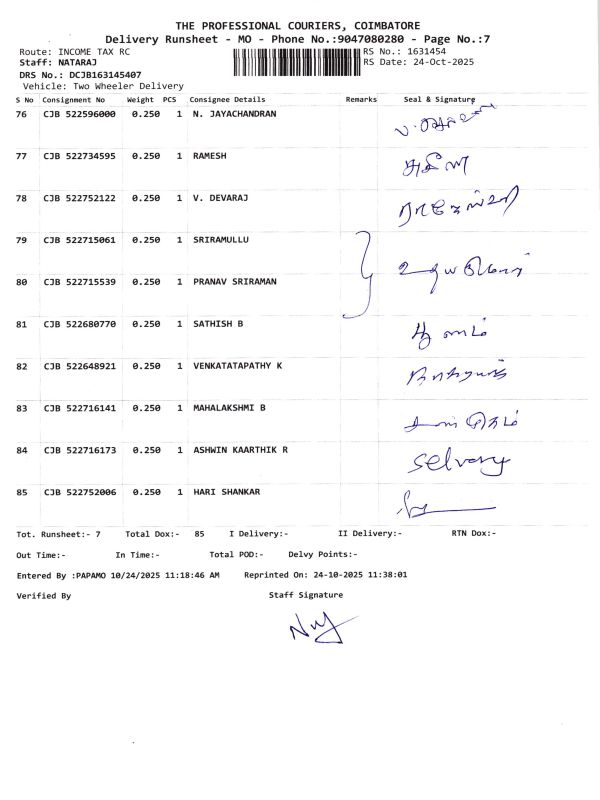 THE PROFESSIONAL COURIERS, COIMBATORE
Delivery Runsheet - MO - Phone No.:9047080280 - Page No.:7
Route: INCOME TAX RC RS No.: 1631454
Staff: NATARAJ RS Date: 24-Oct-2025
DRS No.: DCJB163145407
Vehicle: Two Wheeler Delivery
S No Consignment No Weight PCS Consignee Details Remarks Seal & Signature
76 CJB 522596000 0.250 1 N. JAYACHANDRAN
77 CJB 522734595 0.250 1 RAMESH
78 CJB 522752122 0.250 1 V. DEVARAJ
79 CJB 522715061 0.250 1 SRIRAMULLU
80 CJB 522715539 0.250 1 PRANAV SRIRAMAN
81 CJB 522680770 0.250 1 SATHISH B
82 CJB 522648921 0.250 1 VENKATATAPATHY K
83 CJB 522716141 0.250 1 MAHALAKSHMI B
84 CJB 522716173 0.250 1 ASHWIN KAARTHIK R
Selvaray
85 CJB 522752006 0.250 1 HARI SHANKAR
Tot. Runsheet:- 7 Total Dox:- 85 I Delivery:- II Delivery:- RTN Dox:-
Out Time:- In Time:- Total POD:- Delvy Points:-
Entered By :PAPAMO 10/24/2025 11:18:46 AM Reprinted On: 24-10-2025 11:38:01
Verified By Staff Signature